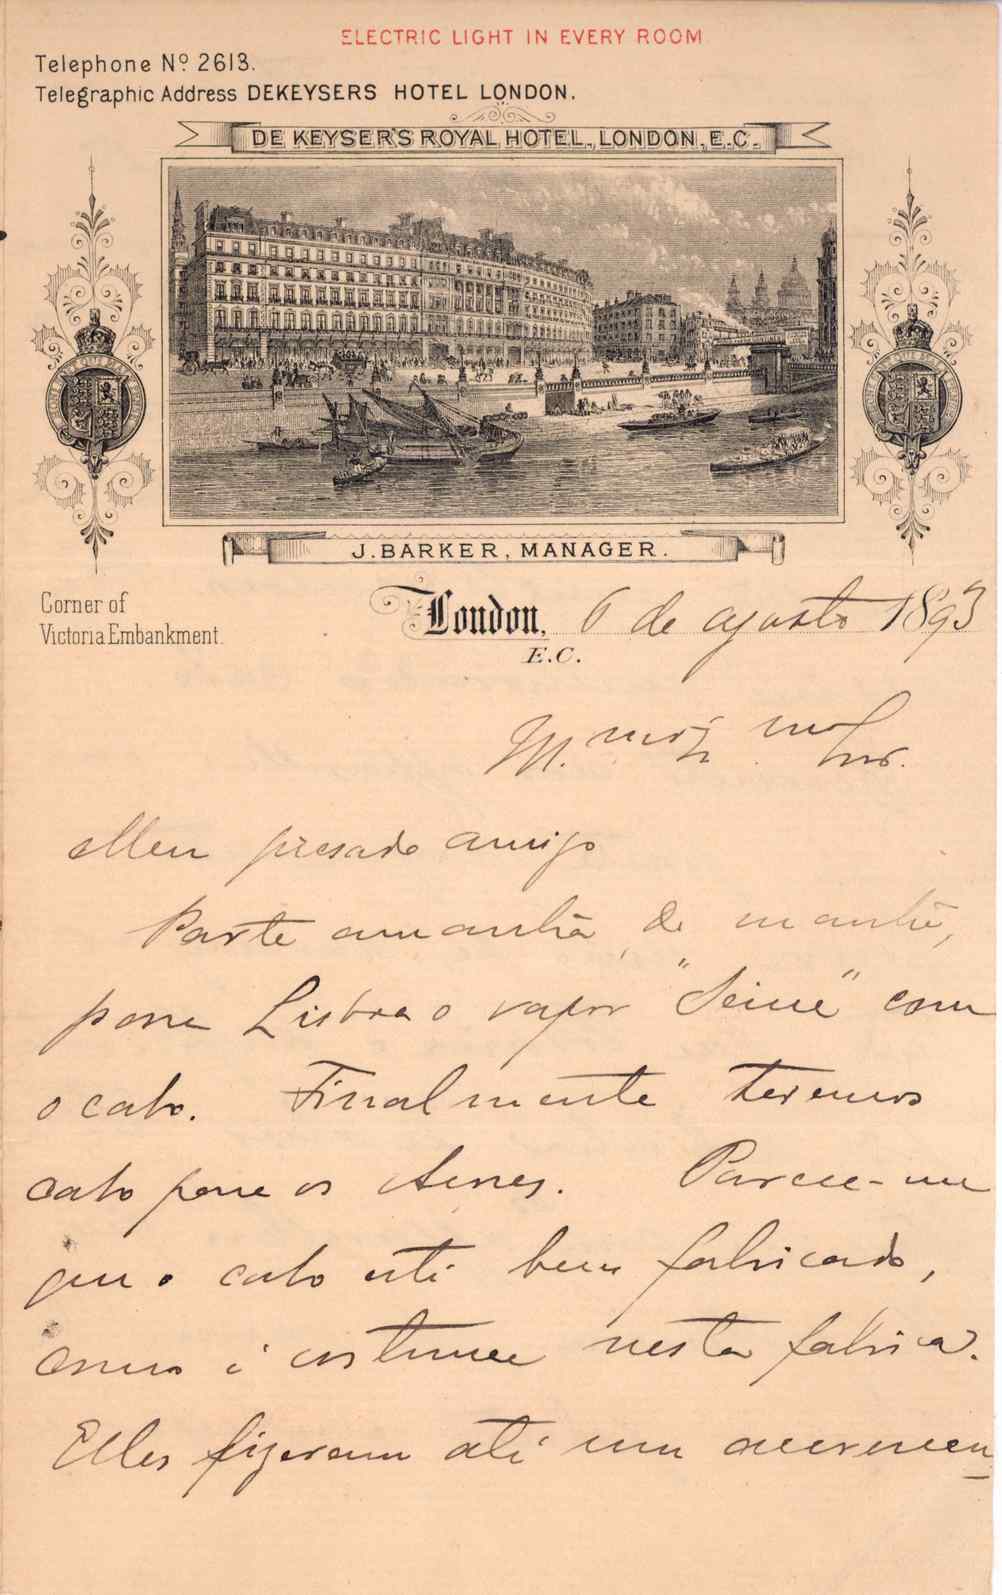 ELECTRIC LIGHT IN EVERY ROOM
Telephone Nº 2613.
Telegraphic Address DEKEYSERS HOTEL LONDON.
DE KEYSER'S ROYAL HOTEL, LONDON, E.C.
J. BARKER, MANAGER.
Corner of
Victoria Embankment.
London, 6 de agosto 1893
E.C.
Meu presado amigo
Parte amanhã, de manhã,
para Lisboa o vapor "Seine" com
o cabo. Finalmente teremos
cabo para os Açores. Parece-me
que o cabo está bem fabricado,
como é costume nesta fabrica.
Elles fizeram até um accrescen